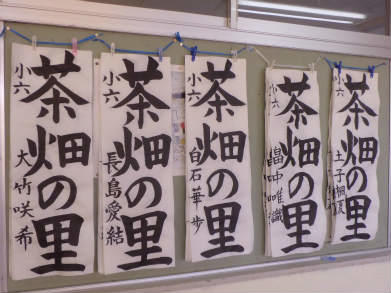 茶畑の里
小六
大竹咲希
茶畑の里
小六
長島愛結
茶畑の里
小六
白石華歩
茶畑の里
小六
畠中唯織
茶畑の里
小六